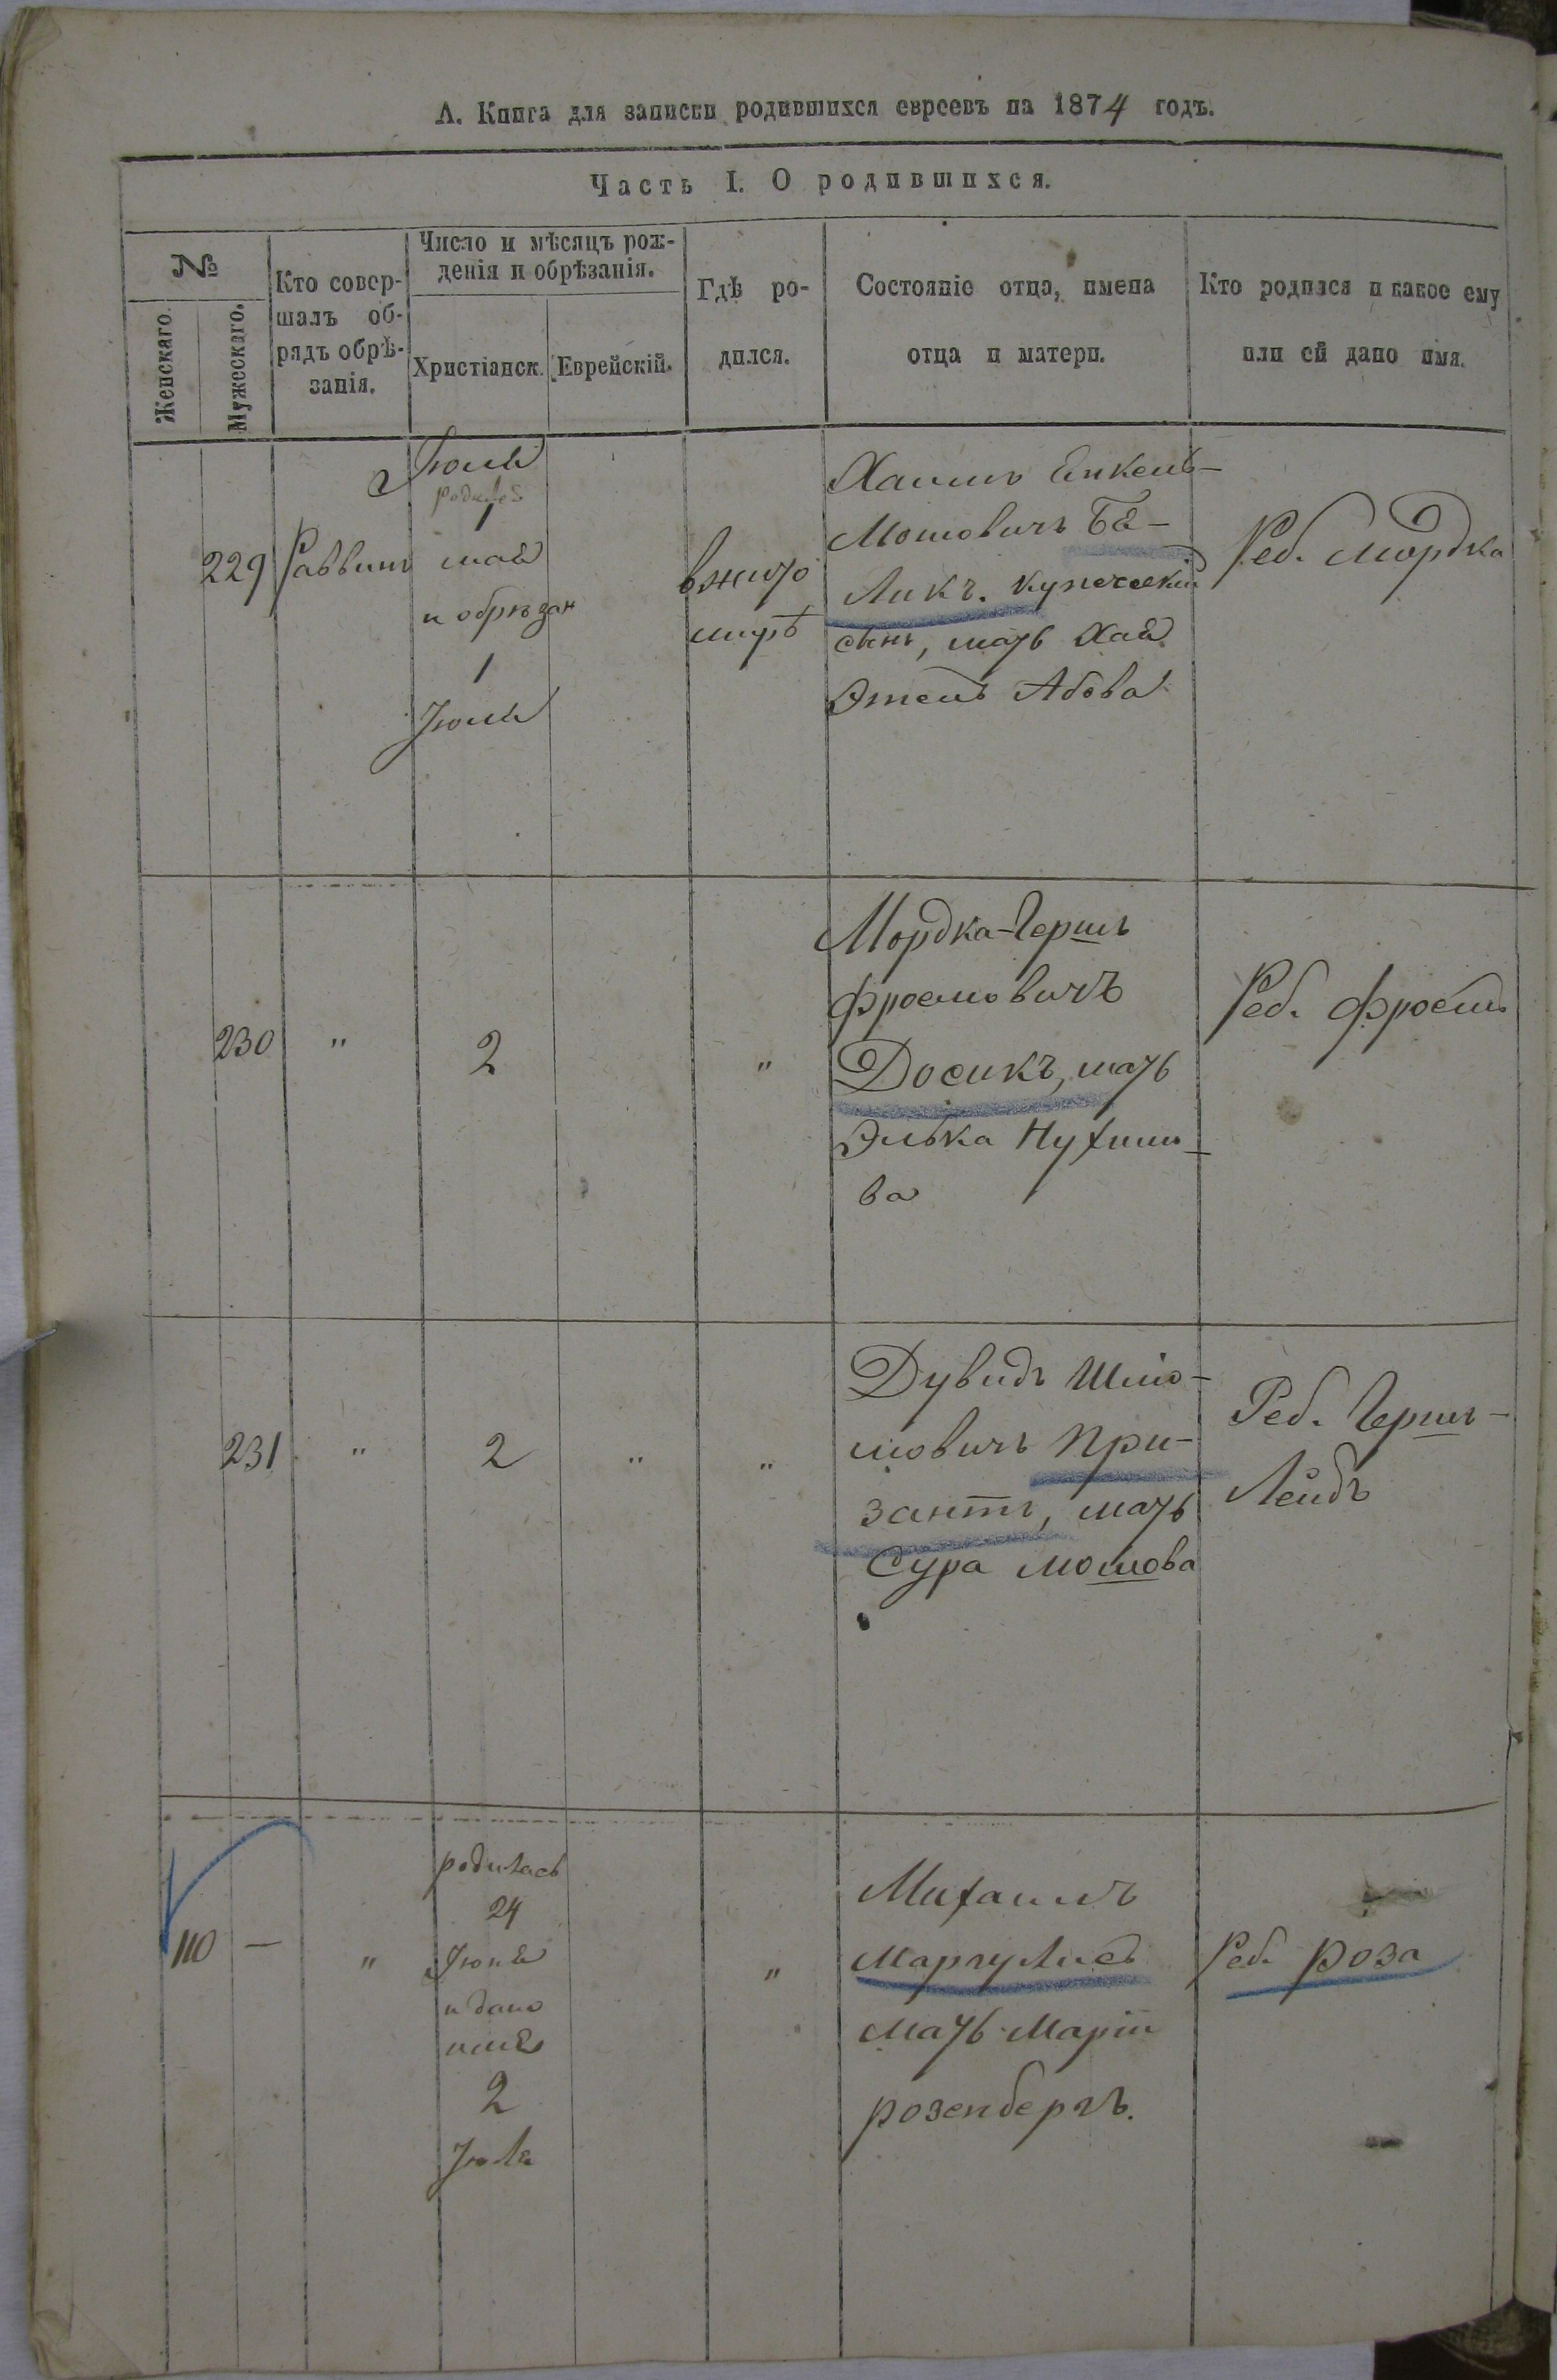 А. Книга для записки родившихся евреевъ на 1874 годъ.
Часть I. О родившихся.
№
Женскаго.
Мужескаго.
Кто совер-
шалъ об-
рядъ обрѣ-
занія.
Число и мѣсяцъ рож-
денія и обрѣзанія.
Христіанск.
Еврейскій.
Гдѣ ро-
дился.
Состояніе отца, имена
отца и матери.
Кто родился и какое ему
или ей дано имя.
Іюля
229
Раввинъ
1
мая
и обрѣзан
1
Іюля
вжито
мирѣ
Хаимъ Енкель-
Мошовичъ Бя-
ликъ. купеческій
сынъ, мать Хая
Этель Абова
Реб. Мордка
230
"
2
"
Мордка-Гершъ
Фроемовичъ
Досикъ, мать
Элька Нухимо-
ва
Реб. Фроемъ
231
"
2
"
"
Дувидъ Шмо-
иловичъ При-
зантъ, мать
Сура Мошова
Реб. Гершъ-
Лейбъ
110
—
"
родилась
24
Іюня
и дано
имя
2
Іюля
"
Михаилъ
Маргулисъ
мать Марія
розенбергъ.
Реб. роза